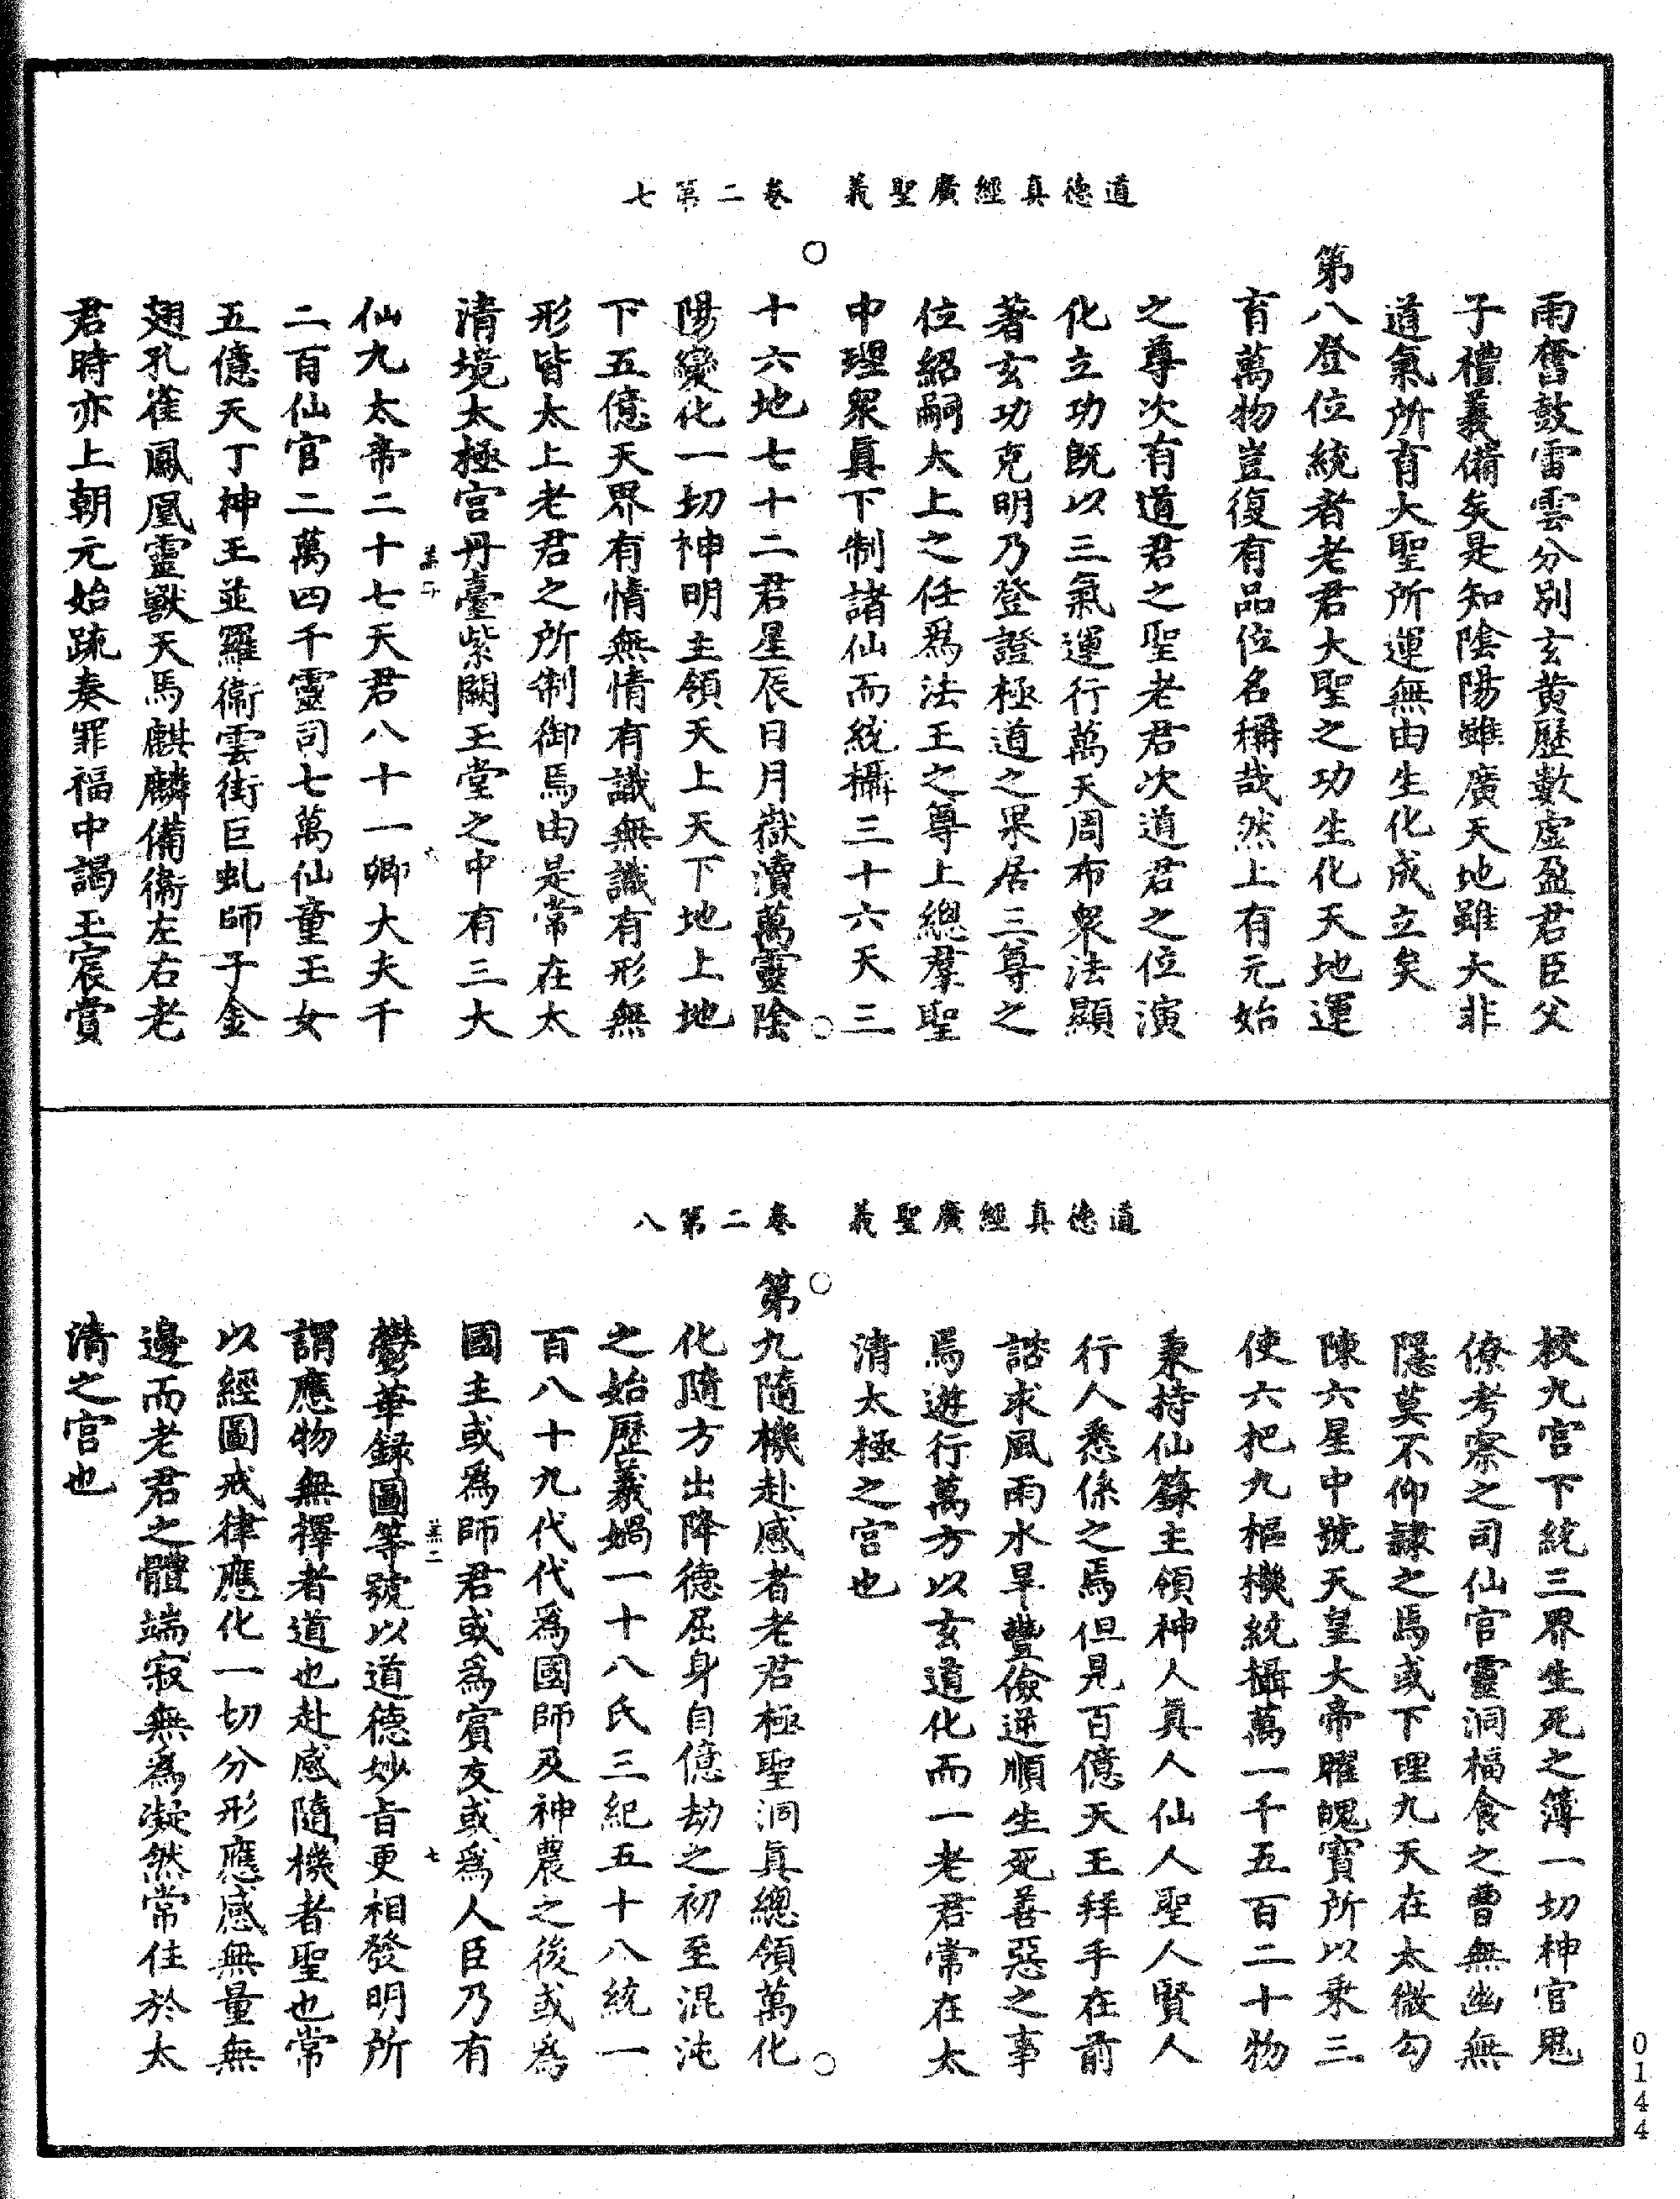 道德真經廣聖義　卷二第七
雨奮鼓雷雲分別玄黄歷數虚盈君臣父
子禮義備矣是知陰陽雖廣天地雖大非
道氣所育大聖所運無由生化成立矣
第八登位統者老君大聖之功生化天地運
育萬物豈復有品位名稱哉然上有元始
之尊次有道君之聖老君次道君之位演
化立功既以三氣運行萬天周布衆法顯
著玄功克明乃登證極道之果居三尊之
位紹嗣太上之任爲法王之尊上總羣聖
中理衆眞下制諸仙而統攝三十六天三
十六地七十二君星辰日月嶽瀆萬靈陰
陽變化一切神明主領天上天下地上地
下五億天界有情無情有識無識有形無
形皆太上老君之所制御焉由是常在太
清境太極宮丹臺紫闕玉堂之中有三大
仙九太帝二十七天君八十一卿大夫千
二百仙官二萬四千靈司七萬仙童玉女
五億天丁神王並羅衞雲街巨虬師子金
翅孔雀鳳凰靈獸天馬麒麟備衞左右老
君時亦上朝元始疏奏罪福中謁玉宸賞
道德真經廣聖義　卷二第八
校九宮下統三界生死之簿一切神官鬼
僚考察之司仙官靈洞福食之曹無幽無
隱莫不仰隸之焉或下理九天在太微勾
陳六星中號天皇大帝曜魄寳所以秉三
使六把九樞機統攝萬一千五百二十物
秉持仙籙主領神人眞人仙人聖人賢人
行人悉係之焉但見百億天王拜手在前
諮求風雨水旱豐儉逆順生死善惡之事
焉遊行萬方以玄道化而一老君常在太
清太極之宮也
第九隨機赴感者老君極聖洞眞總領萬化
化隨方出降德屈身自億劫之初至混沌
之始歷羲媧一十八氏三紀五十八統一
百八十九代代爲國師及神農之後或爲
國主或爲師君或爲賓友或爲人臣乃有
鬱華録圖等號以道德妙旨更相發明所
謂應物無擇者道也赴感隨機者聖也常
以經圖戒律應化一切分形應感無量無
邊而老君之體端寂無爲凝然常住於太
清之宮也
0144